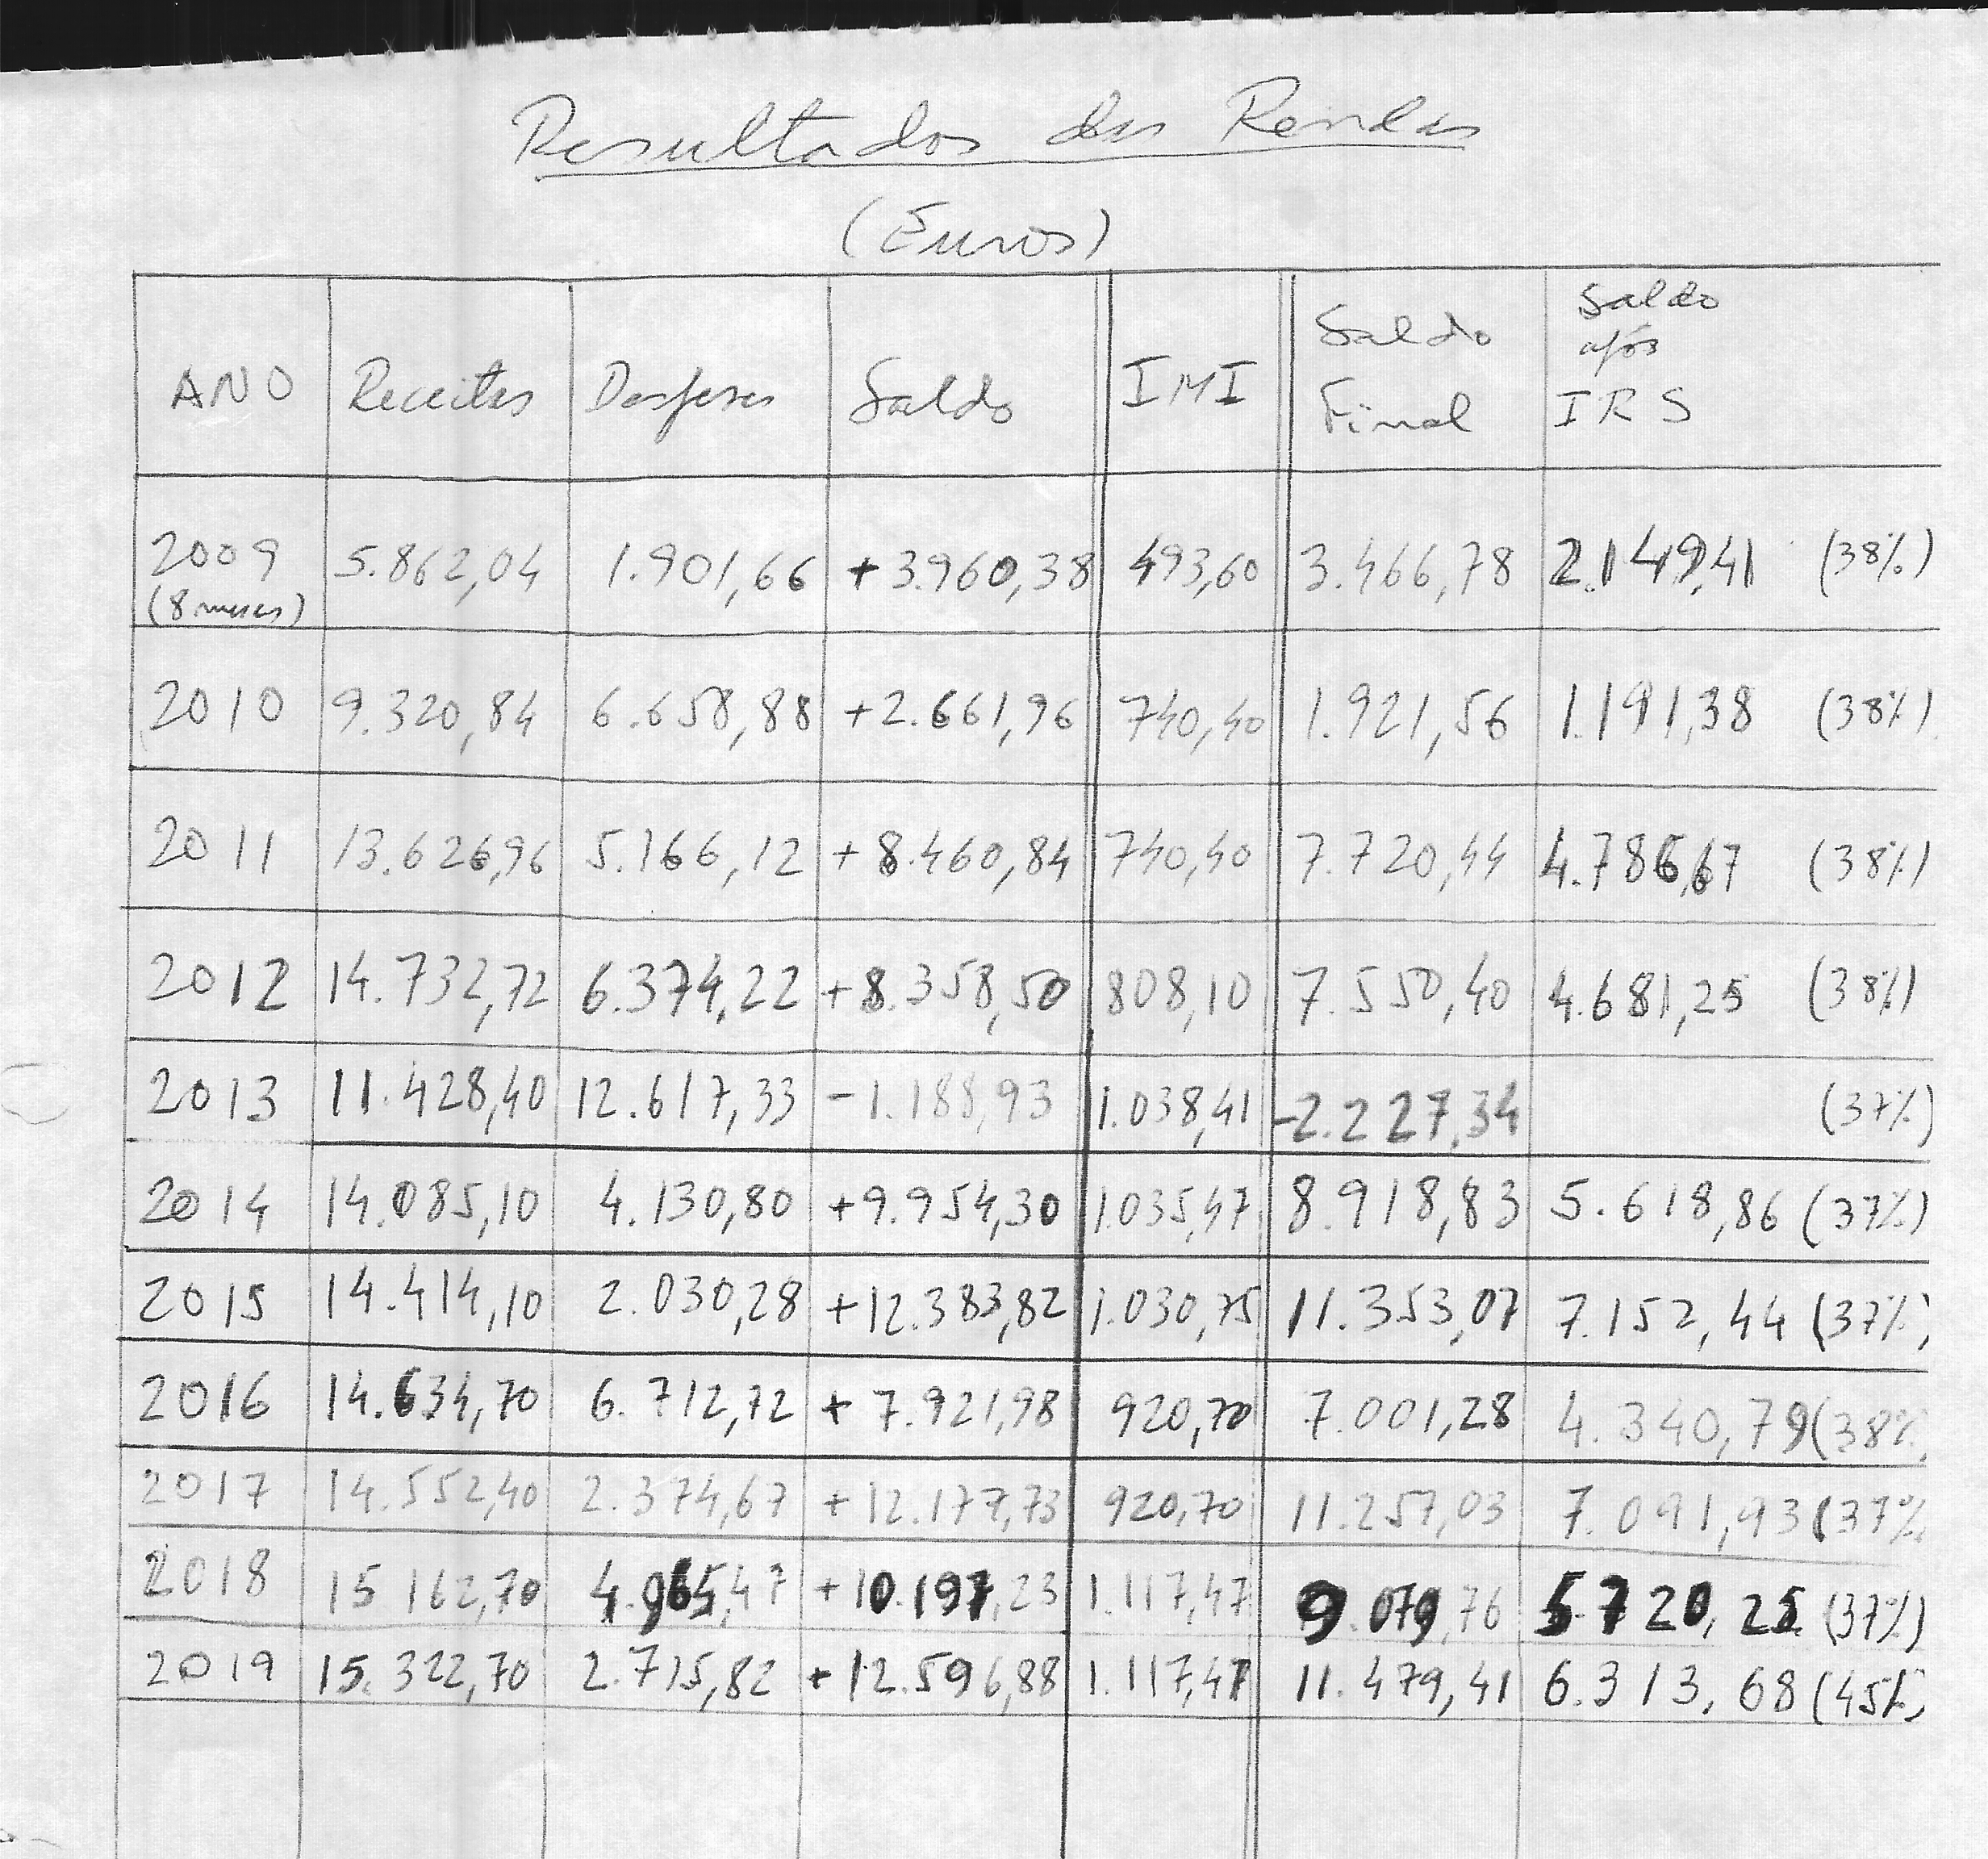 Resultados das Rendas
(Euros)
ANO Receitas Despesas Saldo IMI Saldo Final Saldo após IRS
2009 (8 meses) 5.862,04 1.901,66 +3.960,38 493,60 3.466,78 2.149,41 (38%)
2010 9.320,84 6.658,88 +2.661,96 740,40 1.921,56 1.191,38 (38%)
2011 13.626,96 5.166,12 +8.460,84 740,40 7.720,44 4.786,67 (38%)
2012 14.732,72 6.374,22 +8.358,50 808,10 7.550,40 4.681,25 (38%)
2013 11.428,40 12.617,33 -1.188,93 1.038,41 -2.227,34 (37%)
2014 14.085,10 4.130,80 +9.954,30 1.035,47 8.918,83 5.618,86 (37%)
2015 14.414,10 2.030,28 +12.383,82 1.030,75 11.353,07 7.152,44 (37%)
2016 14.634,70 6.712,72 +7.921,98 920,70 7.001,28 4.340,79 (38%
2017 14.552,40 2.374,67 +12.177,73 920,70 11.257,03 7.091,93 (37%
2018 15 162,70 4.965,47 +10.197,23 1.117,47 9.079,76 5.720,25 (37%)
2019 15.322,70 2.715,82 +12.596,88 1.117,47 11.479,41 6.313,68 (45%)